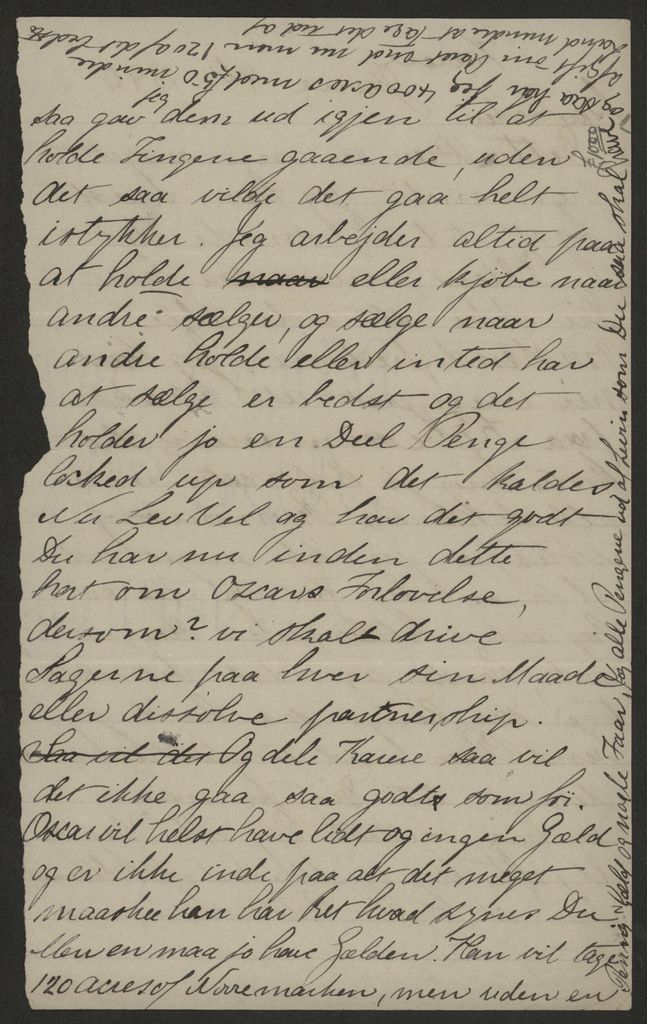 saa gav jeg dem ud igjen til at
holde Tingene gaaende, uden
det saa vilde det gaa helt
istykker. Jeg arbejder altid paa
at holde naar eller kjøbe naar
andre sælger, og sælge naar
andre holde eller inted har
at sælge er bedst og det
holder jo en Deel Penge
locked up som det kaldes
Nu Lev Vel og hav det godt
Du har nu inden dette
hørt om Oscars Forlovelse,
dersom? vi skal drive
Sagerne paa hver sin Maade
eller dissolve partnership.
Saa vil det Og dele Karene saa vil
det ikke gaa saa godt som før.
Oscar vil helst have lidt og ingen Gæld
og er ikke inde paa alt det meget
maaskee han har Ret hvad synes Du
Men en maa jo have Gælden. Han vil tage
120 acres of Nørremarken, men uden en
Penning Gjæld og nogle Faar, Og alle Pengene ud af hvis som Du saa skal have
£1000
og saa har jeg 400 acres med £50 mindre
afgift om Aaret end nu men 120 af det bedste
Land mindre at tage det ud af